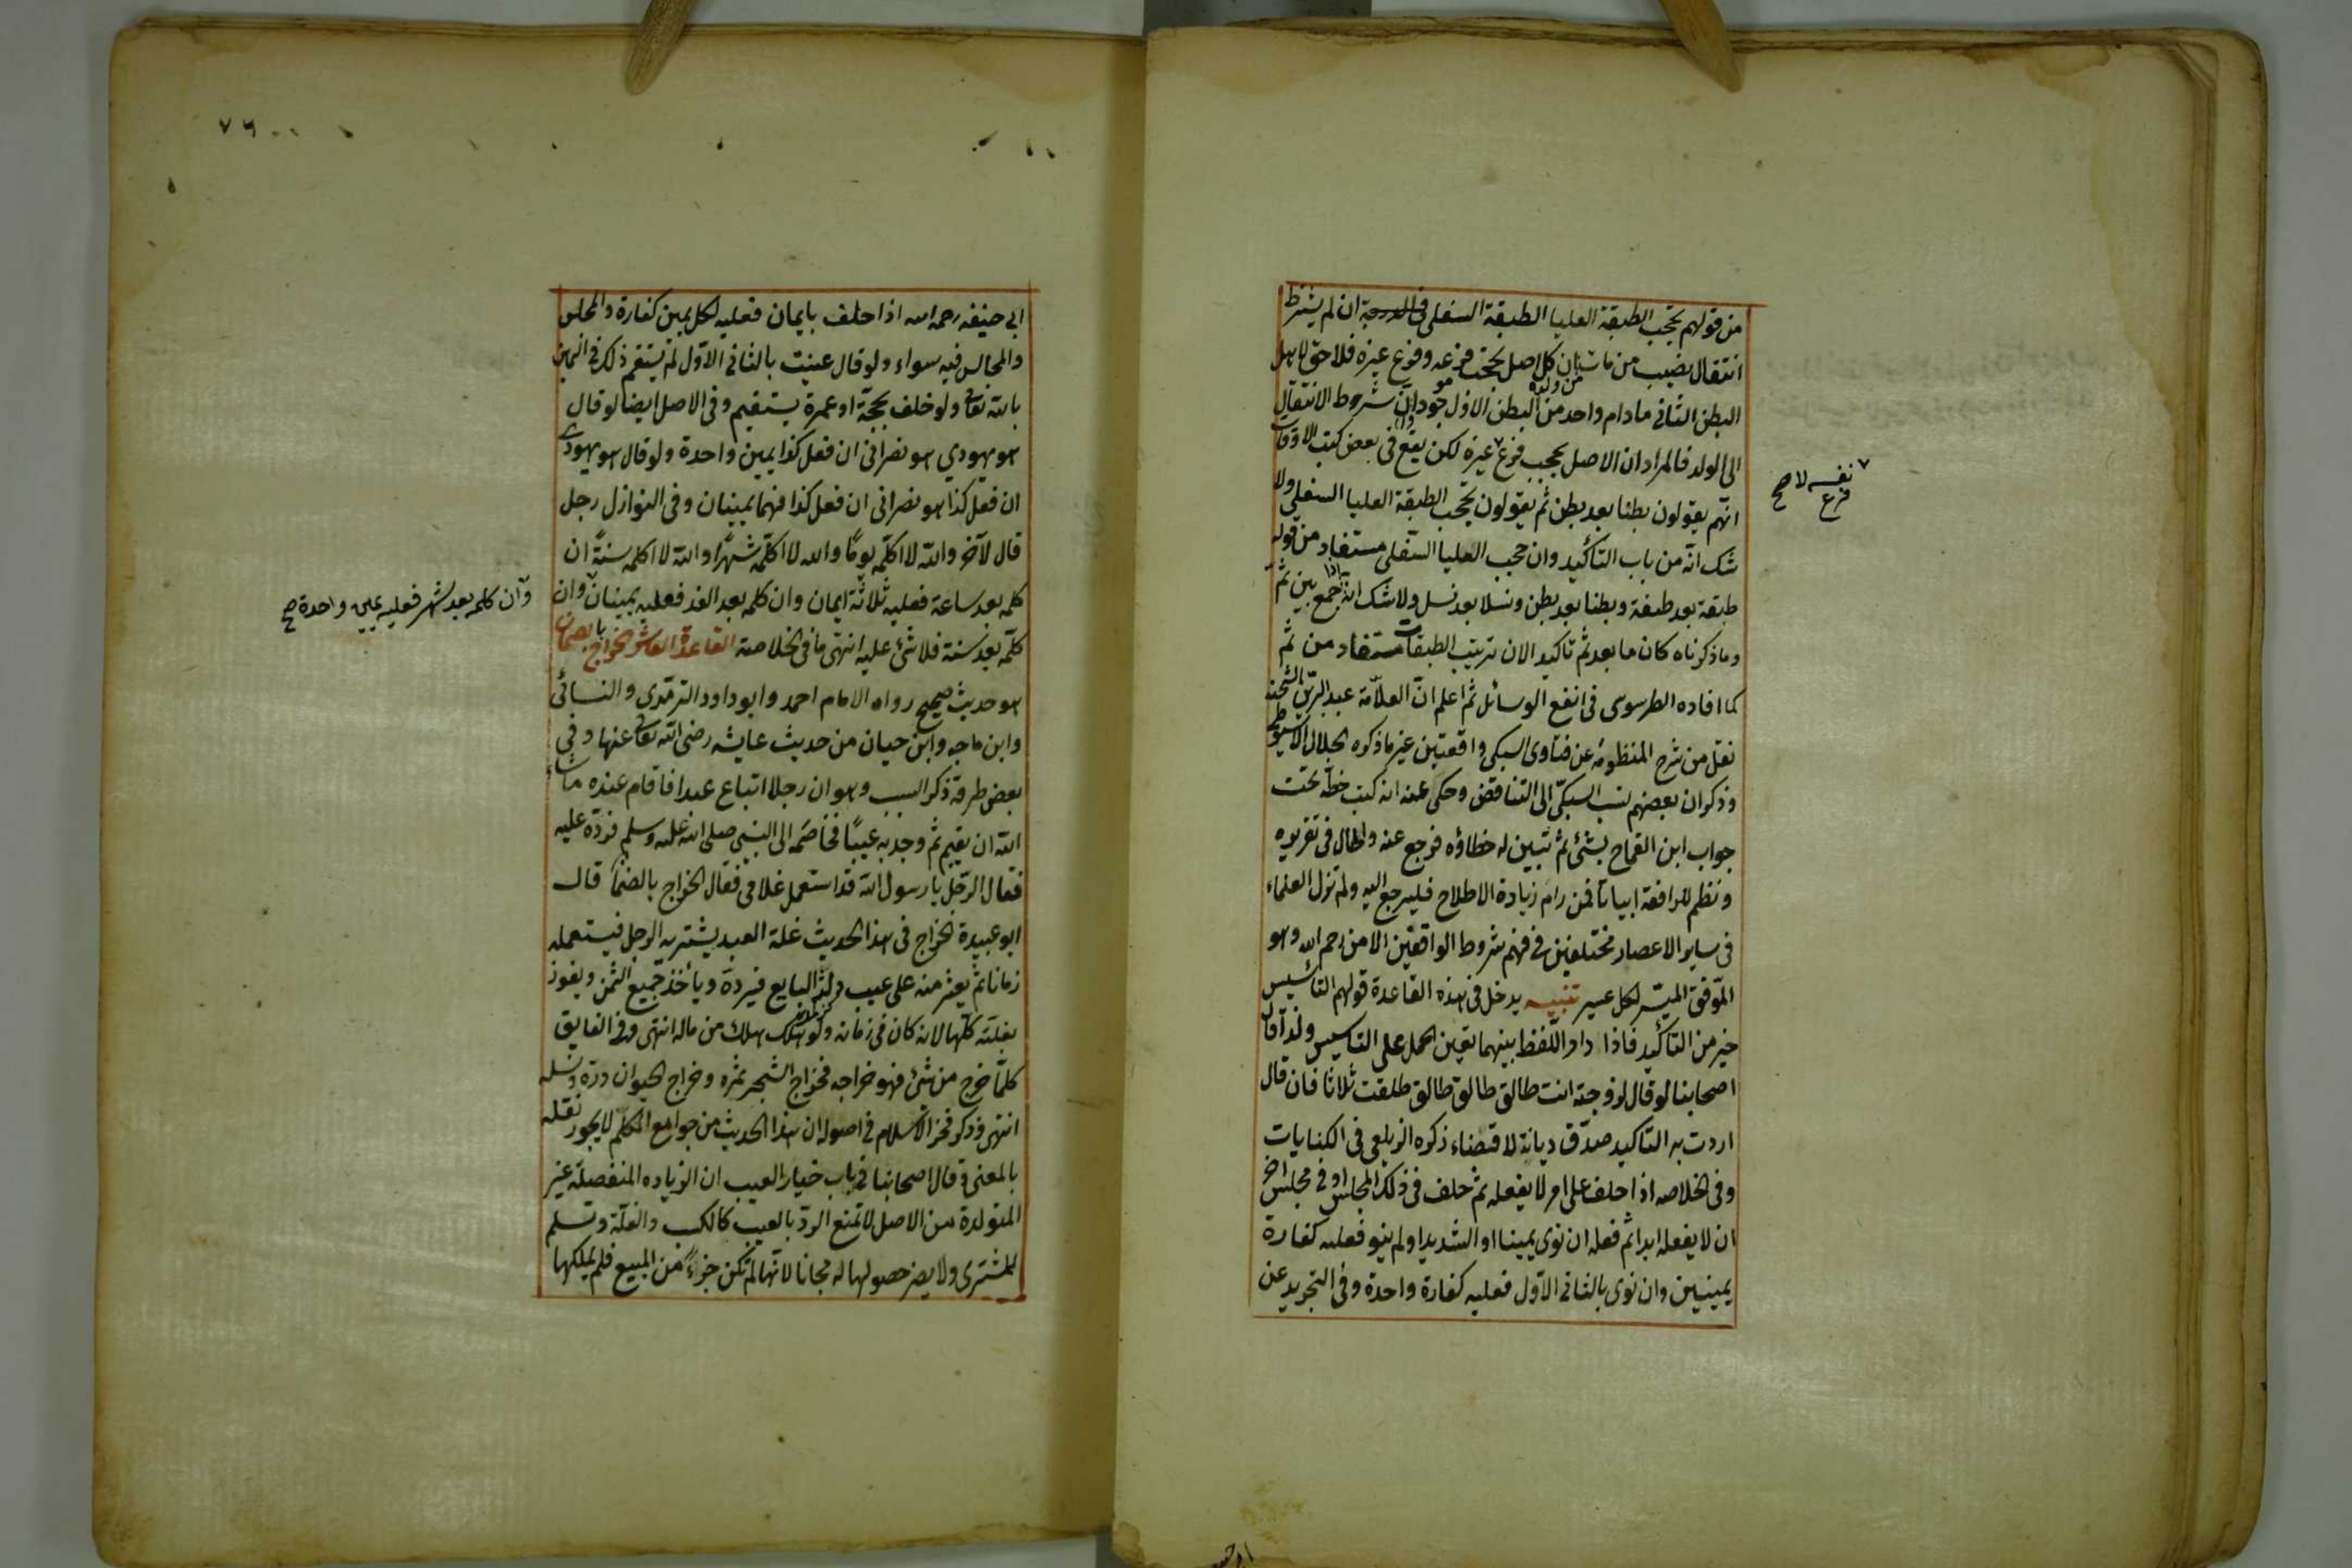 من قولهم تحجب الطبقة العليا الطبقة السفلى ان لم يشترط
انتقال نصيب من مات كل اصل يحجب فرعه وفرع غيره فلا حق لاهل
البطن الثاني مادام واحد من البطن الاول موجودا وان شروط الانتقال
من ولده
الى الولد فالمراد ان الاصل يحجب فرع ٧ غيره لكن يقع في بعض كتب الاوقاف
٧ نفسه لا صح
فرع
انهم يقولون بطنا بعد بطن ثم يقولون تحجب الطبقة العليا السفلى ولا
شك انه من باب التأكيد وان حجب العليا السفلى مستفاد من قوله
طبقة بعد طبقة وبطنا بعد بطن ونسلا بعد نسل ولا شك انه اذا جمع بين ثم
وما ذكرناه كان ما بعد ثم تاكيد الان ترتيب الطبقات مستفاد من ثم
كما افاده الطرسوسى في انفع الوسائل ثم اعلم انّ العلّامة عبد البرّ بن الشحنة
نقل من شرح المنظومة عن فتاوى السبكي واقعتين غير ما ذكره الجلال الاسيوطي
وذكر ان بعضهم نسب السبكيّ الى التناقض وحكى عنه انه كتب خطّه تحت
جواب ابن القماح بشئ ثم تبين له خطاؤه فرجع عنه واطال في تقريره
ونظم للواقعة ابياتا فمن رام زيادة الاطلاح فليرجع اليه ولم تزل العلماء
في ساير الاعصار مختلفين في فهم شروط الواقفين الا من رحم الله وهو
الموفق الميسّر لكل عسير تنبيه يدخل في هذه القاعدة قولهم التاسيس
خير من التأكيد فاذا دار اللّفظ بينهما تعين الحمل على التاسيس ولذا قال
اصحابنا لو قال لزوجته انت طالق طالق طالق طلقت ثلاثا فان قال
اردت به التاكيد صدّق ديانة لا قضاء ذكره الزيلعي في الكنايات
وفي الخلاصه اذا حلف على امر لا يفعله ثم حلف في ذلك المجلس او في مجلس اخر
ان لا يفعله ابدا ثم فعله ان نوى يمينا او الشديد او لم ينو فعليه كفارة
يمينين وان نوى بالثاني الاوّل فعليه كفارة واحدة وفي التجريد عن
٧٦
ابي حنيفه رحمه الله اذا حلف بايمان فعليه لكل يمين كفارة والمجلس
والمجالس فيه سواء ولو قال عنيت بالثاني الاوّل لم يستقم ذلك في اليمين
بالله تعالى ولو حلف بحجّة او عمرة يستقيم وفي الاصل ايضا لو قال
هو يهودي هو نصراني ان فعل كذا يمين واحدة ولو قال هو يهودي
ان فعل كذا هو نصراني ان فعل كذا فهما يمينان وفي النوازل رجل
قال لآخر والله لا اكلّمه يومًا والله لا اكلّمه شهرًا والله لا اكلمه سنةً ان
كلمه بعد ساعة فعليه ثلاثة ايمان وان كلمه بعد الغد فعليه يمينان وان
وان كلمه بعد شهر فعليه يمين واحدة صح
كلّمه بعد سنة فلا شئ عليه انتهى ما في الخلاصة القاعدة العاشرة الخراج بالضمان
هو حديث صحيح رواه الامام احمد وابو داود الترمذي والنسائي
وابن ماجه وابن حبان من حديث عايشه رضى الله تعالى عنها وفي
بعض طرقه ذكر السبب وهو ان رجلا ابتاع عبدا فاقام عنده ما شاء
الله ان يقيم ثم وجد به عيبًا فخاصمه الى النبي صلى الله عليه وسلم فردّه عليه
فقال الرّجل يا رسول الله قد استعمل غلامي فقال الخراج بالضمان قال
ابو عبيدة الخراج في هذا الحديث غلة العبد يشتريه الرجل فيستعمله
زمانا ثم يعثر منه على عيب دلسه البايع فيردّه ويأخذ جميع الثمن ويفوز
بغلّته كلّها لانه كان في زمانه ولو هلك هلك من ماله انتهى وفي الفايق
كلما خرج من شئ فهو خراجه فخراج الشجر ثمره وخراج الحيوان درّه ونسله
انتهى وذكر فخر الاسلام في اصوله ان هذا الحديث من جوامع الكلم لا يجوز نقله
بالمعنى وقال اصحابنا في باب خيار العيب ان الزياده المنفصلة غير
المتولدة من الاصل لا تمنع الردّ بالعيب كالكسب والغلّة وتسلم
للمشترى ولا يضر حصولها له مجانا لانها لم تكن جزءً من المبيع فلم يملكها